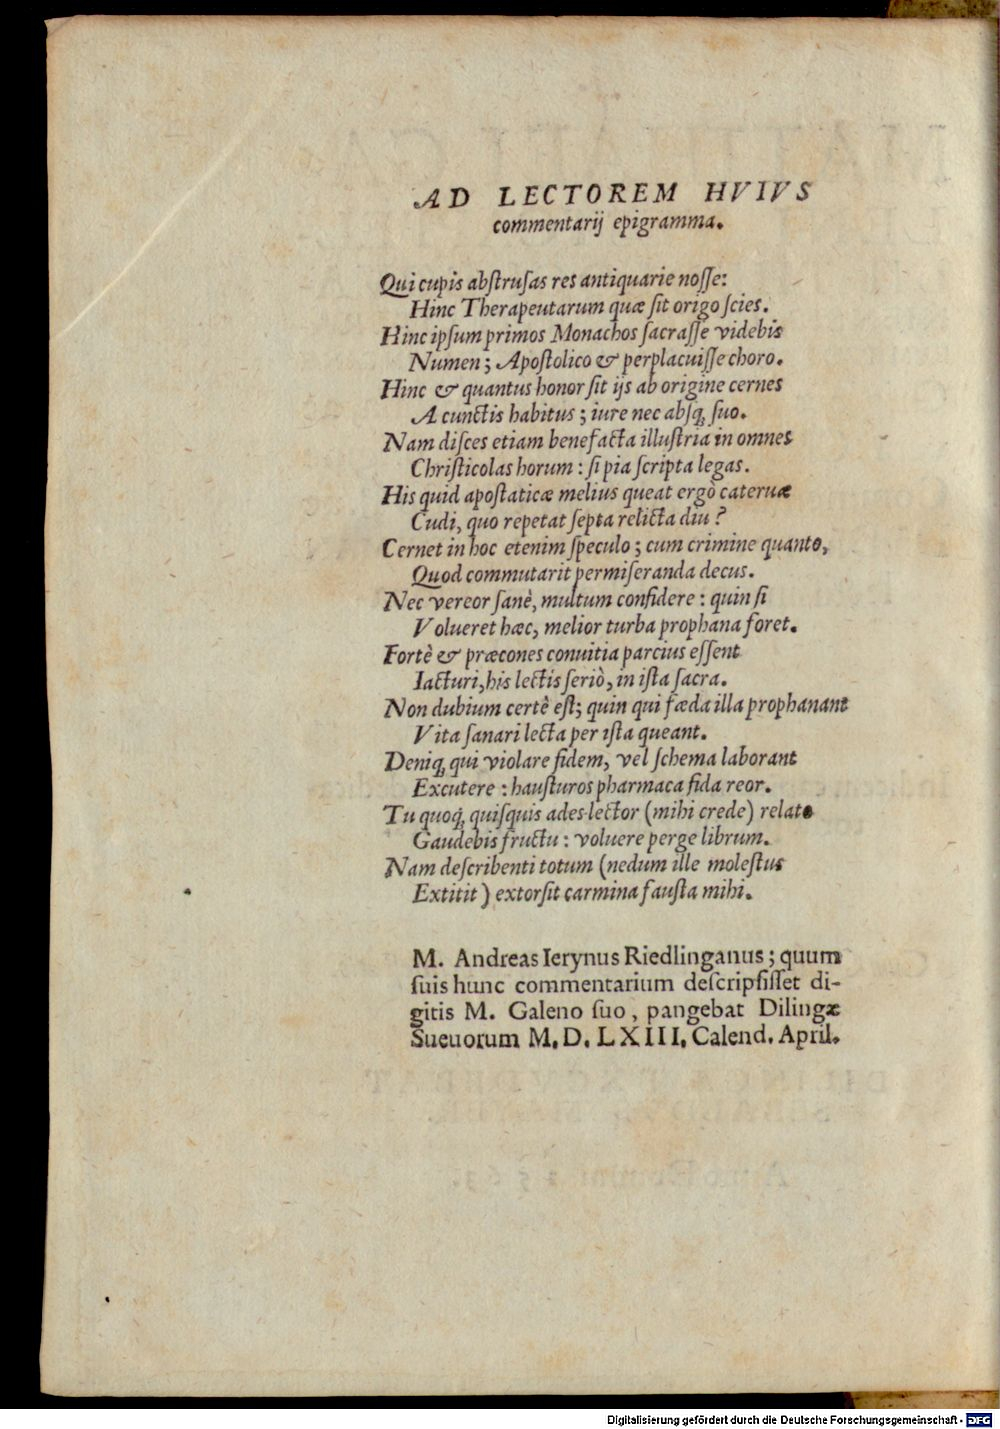 AD LECTOREM HVIVS
commentarij epigramma.
Qui cupis abſtruſas res antiquarie noſſe:
Hinc Therapeutarum quæ ſit origo ſcies.
Hinc ipſum primos Monachos ſacraſſe videbis
Numen; Apoſtolico & perplacuiſſe choro.
Hinc & quantus honor ſit ijs ab origine cernes
A cunctis habitus; iure nec abſq; ſuo.
Nam diſces etiam benefacta illuſtria in omnes
Chriſticolas horum: ſi pia ſcripta legas.
His quid apoſtaticæ melius queat ergò cateruæ
Cudi, quo repetat ſepta relicta diu?
Cernet in hoc etenim ſpeculo; cum crimine quanto,
Quod commutarit permiſeranda decus.
Nec vereor ſanè, multum confidere: quin ſi
Volueret hæc, melior turba prophana foret.
Fortè & præcones conuitia parcius eſſent
Iacturi, his lectis ſeriò, in iſta ſacra.
Non dubium certè eſt; quin qui fæda illa prophanant
Vita ſanari lecta per iſta queant.
Deniq; qui violare fidem, vel ſchema laborant
Excutere: hauſturos pharmaca fida reor.
Tu quoq; quiſquis ades lector (mihi crede) relato
Gaudebis fructu: voluere perge librum.
Nam deſcribenti totum (nedum ille moleſtus
Extitit) extorſit carmina fauſta mihi.
M. Andreas Ierynus Riedlinganus; quum
ſuis hunc commentarium deſcripſiſſet di-
gitis M. Galeno ſuo, pangebat Dilingæ
Sueuorum M. D. LXIII. Calend. April.
Digitalisierung gefördert durch die Deutsche Forschungsgemeinschaft - DFG